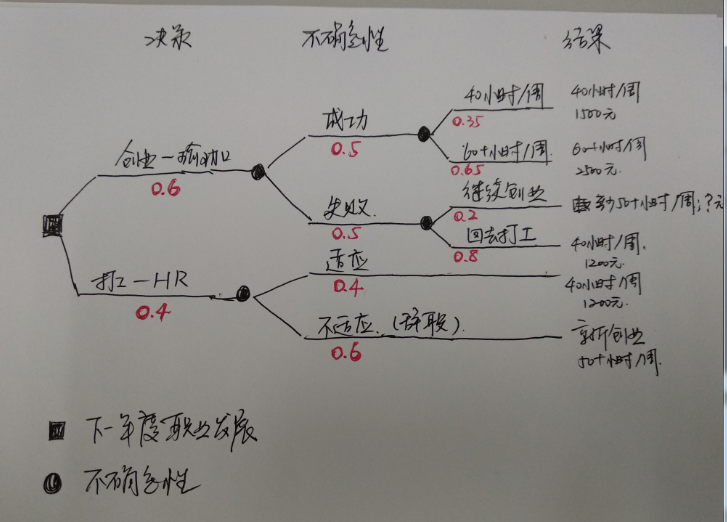 决策 不确定性 结果
40小时/周
0.35
40小时/周
1500元
成功
0.5
60+小时/周
0.65
60+小时/周
2500元
创业—瑜伽
0.6
失败
0.5
继续创业
0.2
50+小时/周;?元
回去打工
0.8
40小时/周
1200元
打工—HR
0.4
适应
0.4
40小时/周
1200元
不适应(辞职)
0.6
重新创业
50+小时/周
下一年度职业发展
不确定性